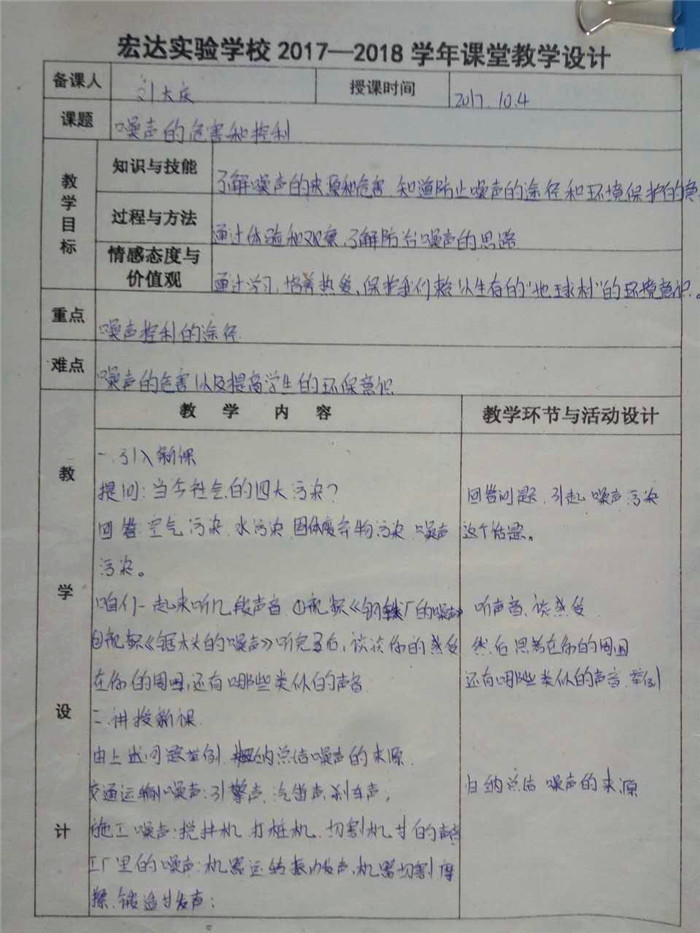 宏达实验学校2017—2018学年课堂教学设计
备课人 刘大庆 授课时间 2017.10.4
课题 噪声的危害和控制
教学目标
知识与技能 了解噪声的来源和危害.知道防止噪声的途径和环境保护的意
过程与方法 通过体验和观察,了解防治噪声的思路
情感态度与价值观 通过学习,培养热爱、保护我们赖以生存的"地球村"的环境意识.
重点 噪声控制的途径.
难点 噪声的危害以及提高学生的环保意识
教学内容 教学环节与活动设计
教学设计
一.引入新课
提问:当今社会的四大污染?
回答.空气污染.水污染.固体废弃物污染.噪声
污染。
咱们一起来听几段声音.①视频《钢铁厂的噪声》
②视频《锯木头的噪声》听完了后,谈谈你的感受
在你的周围,还有哪些类似的声音
二.讲授新课.
由上述问题举例.归纳总结噪声的来源.
交通运输噪声:引擎声.汽笛声.刹车声,
施工噪声:搅拌机.打桩机.切割机等的声音
工厂里的噪声:机器运转振动发声,机器切割摩
擦.锻造等发声;
回答问题.引起噪声污染
这个话题。
听声音.谈感受
然后思考在你的周围
还有哪些类似的声音.举例
归纳总结噪声的来源